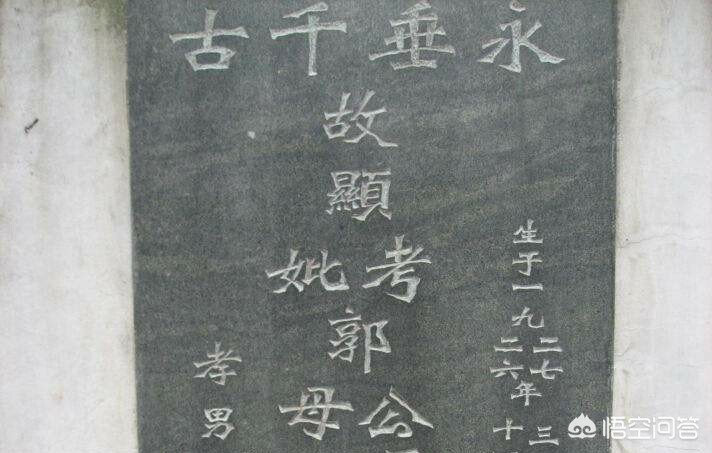 永垂千古
生于一九
二七
二六
年
三
十
故顯
考
妣
郭
公
母
孝男
悟空问答